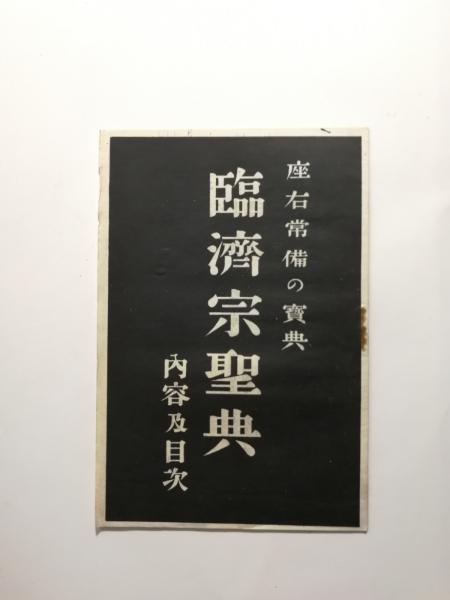 座右常備の寶典
臨濟宗聖典
內容及目次